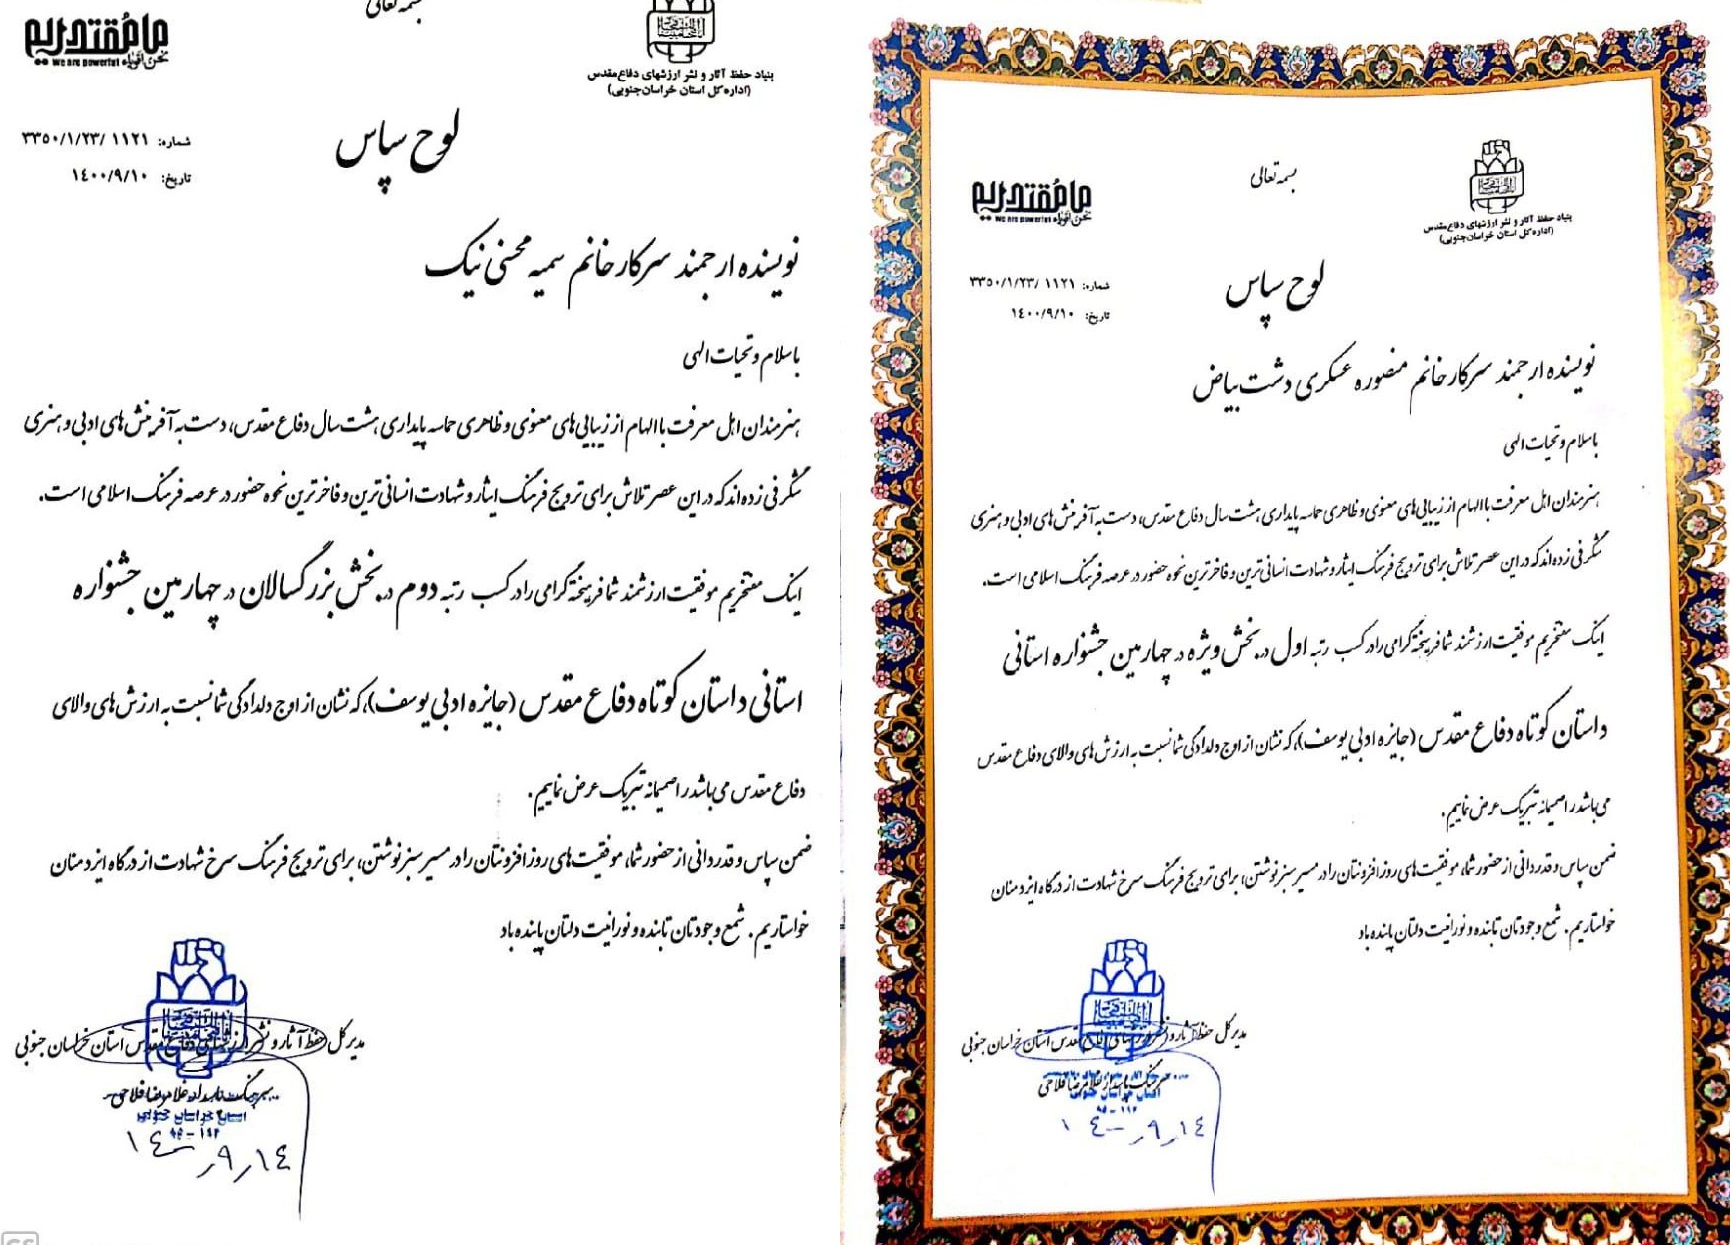 بسمه تعالی
ما مُقتدریم
we are powerful نحن اقویاء
بنیاد حفظ آثار و نشر ارزشهای دفاع مقدس
(اداره کل استان خراسان جنوبی)
لوح سپاس
شماره: ۱۱۲۱ /۳۳۵۰/۱/۲۳
تاریخ: ۱٤۰۰/۹/۱۰
نویسنده ارجمند سرکار خانم سمیه محسنی نیک
با سلام و تحیات الهی
هنرمندان اهل معرفت با الهام از زیبایی‌های معنوی و ظاهری حماسه پایداری هشت سال دفاع مقدس، دست به آفرینش‌های ادبی و هنری
شگرفی زده‌اند که در این عصر تلاش برای ترویج فرهنگ ایثار و شهادت انسانی‌ترین و فاخرترین نحوه حضور در عرصه فرهنگ اسلامی است.
اینک مفتخریم موفقیت ارزشمند شما فریخته گرامی را در کسب رتبه دوم در بخش بزرگسالان در چهارمین جشنواره
استانی داستان کوتاه دفاع مقدس (جایزه ادبی یوسف)، که نشان از اوج دلدادگی شما نسبت به ارزش‌های والای
دفاع مقدس می‌باشد را صمیمانه تبریک عرض نماییم.
ضمن سپاس و قدردانی از حضور شما، موفقیت‌های روزافزونتان را در مسیر سبز نوشتن، برای ترویج فرهنگ سرخ شهادت از درگاه ایزد منان
خواستاریم. شمع وجودتان تابنده و نورانیت دلتان پاینده باد
مدیر کل حفظ آثار و نشر ارزشهای دفاع مقدس استان خراسان جنوبی
سرهنگ پاسدار غلامرضا فلاحی
استان خراسان جنوبی
۱٤۰۰٫۹٫۱٤
بسمه تعالی
ما مُقتدریم
we are powerful نحن اقویاء
بنیاد حفظ آثار و نشر ارزشهای دفاع مقدس
(اداره کل استان خراسان جنوبی)
لوح سپاس
شماره: ۱۱۲۱ /۳۳۵۰/۱/۲۳
تاریخ: ۱٤۰۰/۹/۱۰
نویسنده ارجمند سرکار خانم منصوره عسکری دشت بیاض
با سلام و تحیات الهی
هنرمندان اهل معرفت با الهام از زیبایی‌های معنوی و ظاهری حماسه پایداری هشت سال دفاع مقدس، دست به آفرینش‌های ادبی و هنری
شگرفی زده‌اند که در این عصر تلاش برای ترویج فرهنگ ایثار و شهادت انسانی‌ترین و فاخرترین نحوه حضور در عرصه فرهنگ اسلامی است.
اینک مفتخریم موفقیت ارزشمند شما فریخته گرامی را در کسب رتبه اول در بخش ویژه در چهارمین جشنواره استانی
داستان کوتاه دفاع مقدس (جایزه ادبی یوسف)، که نشان از اوج دلدادگی شما نسبت به ارزش‌های والای دفاع مقدس
می‌باشد را صمیمانه تبریک عرض نماییم.
ضمن سپاس و قدردانی از حضور شما، موفقیت‌های روزافزونتان را در مسیر سبز نوشتن، برای ترویج فرهنگ سرخ شهادت از درگاه ایزد منان
خواستاریم. شمع وجودتان تابنده و نورانیت دلتان پاینده باد
مدیر کل حفظ آثار و نشر ارزشهای دفاع مقدس استان خراسان جنوبی
سرهنگ پاسدار غلامرضا فلاحی
استان خراسان جنوبی
۱٤۰۰٫۹٫۱٤